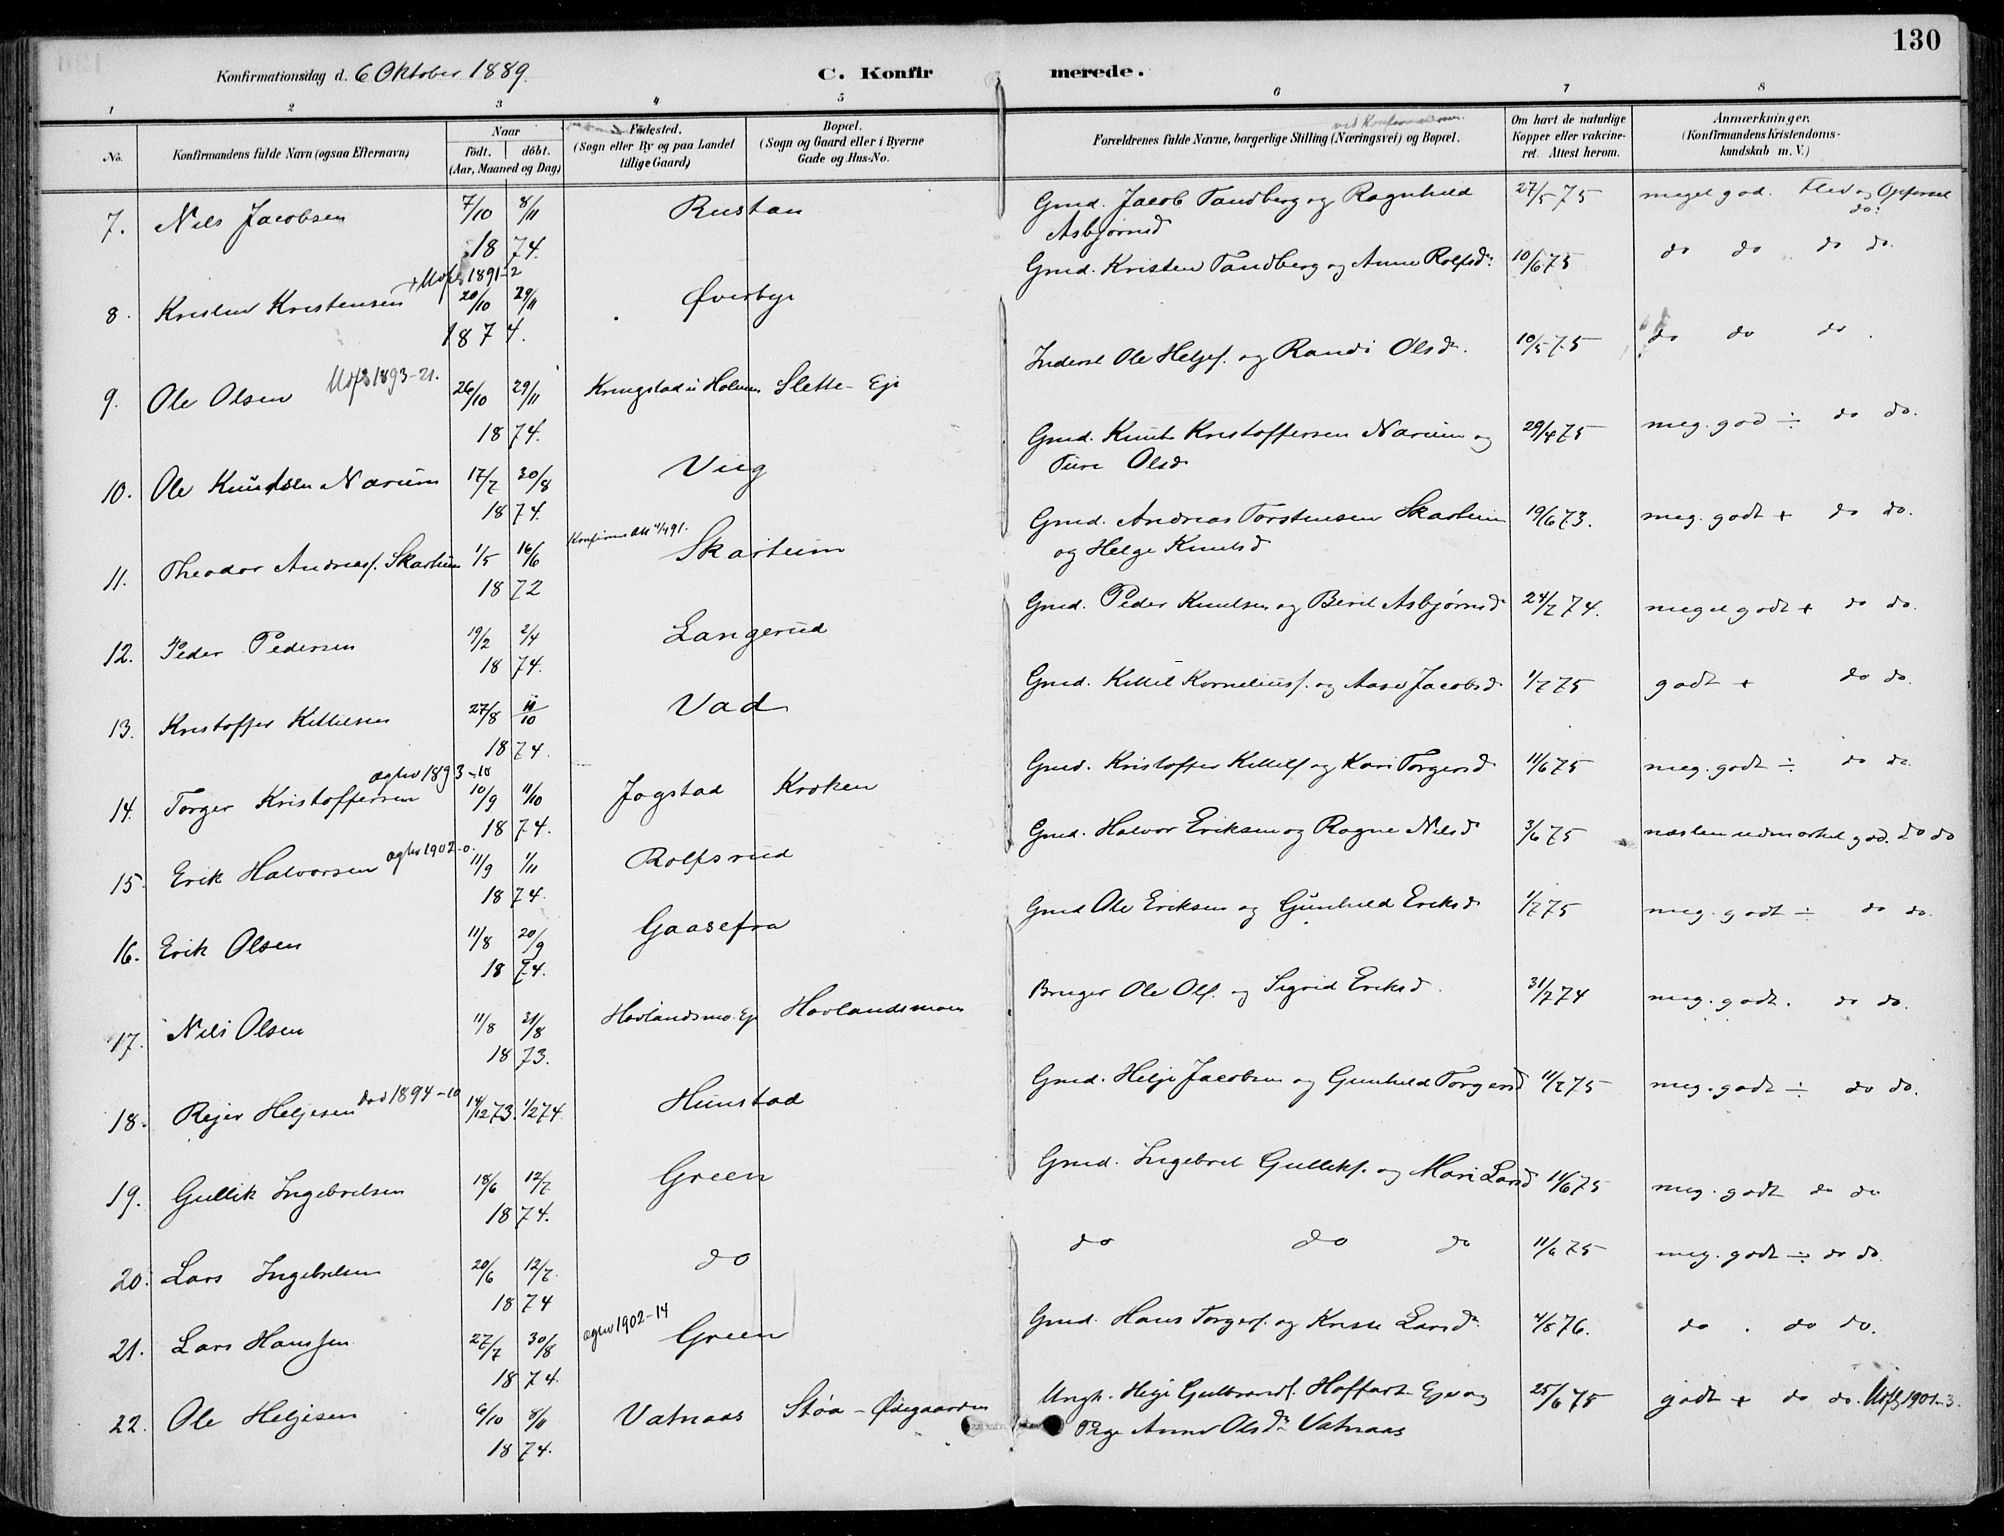 130
Konfirmationsdag d. 6 Oktober 1889.
C. Konfirmerede.
1 2 3 4 5 6 7 8
No.
Konfirmandens fulde Navn (ogsaa Efternavn)
Naar
Födt. döbt.
(Aar, Maaned og Dag)
Födested.
(Sogn eller By og paa Landet
tillige Gaard)
Bopæl.
(Sogn og Gaard eller i Byerne
Gade og Hus-No.
ved Konfirmationen.
Forældrenes fulde Navne, borgerlige Stilling (Næringsvei) og Bopæl.
Om havt de naturlige
Kopper eller vakcine-
ret. Attest herom.
Anmærkninger.
(Konfirmandens Kristendoms-
kundskab m. V.)
7. Nils Jacobsen 7/10 8/11 Rustan Gmd. Jacob Tandberg og Ragnhild 27/5 75 meget god. Flid og Opførsel
1874. Asbjørnsd do:
+ Udfl 1891-2
8. Kristen Kristensen 20/10 29/11 Øverbye Gmd. Kristen Tandberg og Anne Rolfsdr 10/6 75 do do do do.
1874.
Udfl 1893-21.
9. Ole Olsen 26/10 29/11 Kringstad i Holmen Slette-Eje Inderst Ole Heljes. og Randi Olsdr. 10/5 75 do do do.
1874.
10. Ole Knudsen Narum 17/7 30/8 Viig Gmd. Knut Kristoffersen Narum og 29/4 75 meg. god ÷ do do.
1874. Ture Olsd
11. Theodor Andreas. Skartum 1/5 16/6 Skartum Gmd. Andreas Torstensen Skartum 19/6 73. meg. godt + do do.
1872 og Helge Knutsd
12. Peder Pedersen 19/2 2/4 Langerud Gmd. Peder Knutsen og Berit Asbjørnsd 24/7 74. meget godt + do do.
1874.
13. Kristoffer Kittilsen 27/8 11/10 Vad Gmd. Kittil Kornelius. og Aase Jacobsd 1/7 75 godt + do do.
1874.
agtev 1893-18
14. Torger Kristoffersen 10/9 11/10 Jogstad Kroken Gmd. Kristoffer Kittils. og Kari Torgersd 11/6 75 meg. godt ÷ do do.
1874.
agtev 1902-0.
15. Erik Halvorsen 11/9 1/11 Rolfsrud Gmd. Halvor Eriksen og Ragne Nilsd 3/6 75 næsten udmærket god. do do
1874.
16. Erik Olsen 11/8 20/9 Gaasefra Gmd Ole Eriksen og Gunhild Eriksd 1/7 75 meg. godt ÷ do do.
1874.
17. Nils Olsen 11/8 31/8 Hovlandsmo-Eje Hovlandsmoen Bruger Ole Ols. og Sigrid Eriksd. 31/7 74 meg. godt. do do.
1873.
18. Rejer Heljesen død 1894-10 14/12 73. 1/2 74. Hunstad Gmd. Helje Jacobsen og Gunhild Torgersd 11/7 75 meg. godt ÷ do do.
19. Gullik Ingebretsen 18/6 12/7 Green Gmd. Ingebret Gulliks. og Mari Larsd 11/6 75 meg. godt do do
1874.
20. Lars Ingebretsen 20/6 12/7. do do do do 11/6 75 meg. godt ÷ do do.
1874
agtev 1902-14
21. Lars Hanssen 27/7 30/8 Green Gmd. Hans Torgers. og Kristi Larsdr 4/8 76. do. do do.
1874.
22. Ole Heljesen 6/10 8/11 Vatnaas Støa-Ødegaarden Ungk. Helje Gulbrands. Hoffart-Eje og 25/6 75 godt + do do. Udfl 1901-3.
1874. Pige Anne Olsdr Vatnaas